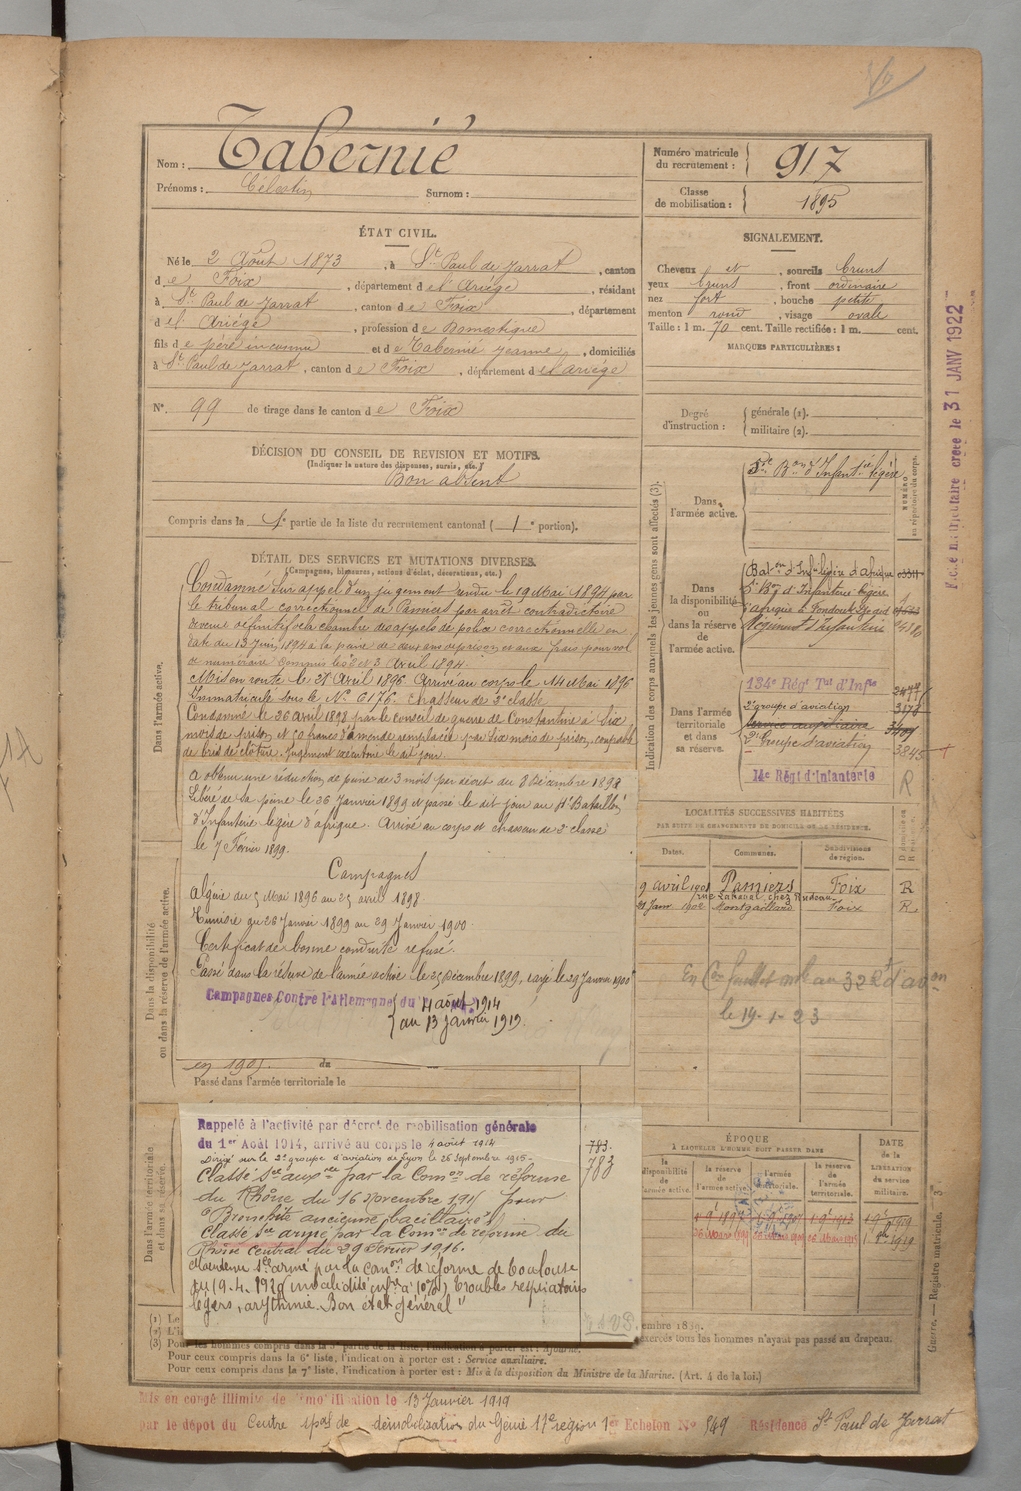 Nom : Tabernié
Prénoms : Célestin Surnom :
Numéro matricule du recrutement : 917
Classe de mobilisation : 1895
ÉTAT CIVIL.
Né le 2 Août 1873, à St Paul de Jarrat, canton
de Foix, département de l'Ariège, résidant
à St Paul de Jarrat, canton de Foix, département
del Ariège, profession de Domestique
fils de père inconnu et de Tabernié Jeanne, domiciliés
à St Paul de Jarrat, canton de Foix, département del ariège
N° 99 de tirage dans le canton de Foix
SIGNALEMENT.
Cheveux et, sourcils bruns
yeux bruns, front ordinaire
nez fort, bouche petite
menton rond, visage ovale
Taille : 1 m. 70 cent. Taille rectifiée : 1 m. cent.
MARQUES PARTICULIÈRES :
Degré d'instruction : générale (1).
militaire (2).
DÉCISION DU CONSEIL DE REVISION ET MOTIFS.
(Indiquer la nature des dispenses, sursis, etc.)
Bon absent
Compris dans la 1e partie de la liste du recrutement cantonal ( 1e portion).
DÉTAIL DES SERVICES ET MUTATIONS DIVERSES.
(Campagnes, blessures, actions d'éclat, décorations, etc.)
Dans l'armée active.
Condamné sur appel d'un jugement rendu le 19 Mai 1894 par
le tribunal correctionnel de Pamiers par arrêt contradictoire
devenu définitif de la chambre des appels de police correctionnelle en
date du 13 Juin 1894 à la peine de deux ans de prison et aux frais pour vol
de numéraire commis les 2 et 3 Avril 1894.
Mis en route le Avril 1896. Arrivé au corps le 14 Mai 1896
Immatriculé sous le N° 6176. Chasseur de 2e classe
Condamné le 26 avril 1898 par le conseil de guerre de Constantine à six
mois de prison et 50 francs d'amende remplacés par six mois de prison, coupable
de bris de clôture. Jugement exécutoire le dit jour.
A obtenu une réduction de peine de 3 mois par décret du 8 Décembre 1898
Libéré de sa peine le 26 Janvier 1899 et passé le dit jour au 4e Bataillon
d'Infanterie légère d'afrique. Arrivé au corps et chasseur de 2e classe
le 7 Février 1899.
Campagnes
Algérie du 5 Mai 1896 au 25 avril 1898
Tunisie du 26 Janvier 1899 au 29 Janvier 1900
Certificat de bonne conduite refusé.
Passé dans la réserve de l'armée active le 25 Décembre 1899, rayé le 29 Janvier 1900
Campagnes Contre l'Allemagne du 4 août 1914
au 13 janvier 1919.
Dans la disponibilité ou dans la réserve de l'armée active.
Passé dans l'armée territoriale le
Dans l'armée territoriale et dans sa réserve.
Rappelé à l'activité par décret de mobilisation générale
du 1er Août 1914, arrivé au corps le 4 août 1914
Dirigé sur le 2e groupe d'aviation de Lyon le 26 Septembre 1915
Classé Sce aux re par la Comon de réforme
du Rhône du 16 Novembre 1915 pour
"Bronchite ancienne bacillaire"
Classé Sce armé par la Comon de réforme du
Rhône central du 29 Février 1916.
Maintenu Sce armé par la Comon de réforme de Toulouse
du 19.4.1920 (invalidité infre à 10%) troubles respiratoires
légers, arythmie. Bon état général"
783.
783
Indication des corps auxquels les jeunes gens sont affectés (3).
NUMÉRO au répertoire du corps.
Dans l'armée active.
5e Bon d'Infantie légère
Dans la disponibilité ou dans la réserve de l'armée active.
Baton d'Infie légère d'Afrique
5e Bon d'Infanterie légère
d'afrique
Régiment d'Infanterie
Dans l'armée territoriale et dans sa réserve.
134e Régt Tal d'Infie
2e groupe d'aviation
Service auxiliaire
2e Groupe d'aviation 3845
14e Régt d'Infanterie R
LOCALITÉS SUCCESSIVES HABITÉES
PAR SUITE DE CHANGEMENTS DE DOMICILE OU DE RÉSIDENCE.
Dates. Communes. Subdivisions de région.
9 avril 1901 Pamiers Foix R
rue Lakanal chez Rudeau
21 Janv 1902 Montgaillard Foix R
le 19-1-23
ÉPOQUE
À LAQUELLE L'HOMME DOIT PASSER DANS
la disponibilité de l'armée active.
la réserve de l'armée active.
l'armée territoriale.
la réserve de l'armée territoriale.
DATE de la LIBÉRATION du service militaire.
(1) Le
(3) Pour les hommes compris dans la 5e partie de la liste, l'indication à porter est : Ajourné.
Pour ceux compris dans la 6e liste, l'indication à porter est : Service auxiliaire.
Pour ceux compris dans la 7e liste, l'indication à porter est : Mis à la disposition du Ministre de la Marine. (Art. 4 de la loi.)
exercés tous les hommes n'ayant pas passé au drapeau.
Guerre. — Registre matricule.
31 JANV 1922
Mis en congé Illimité de démobilisation le 13 Janvier 1919
par le dépôt du Centre de démobilisation du Génie 17e région 1er Echelon N° 549 Résidence St Paul de Jarrat